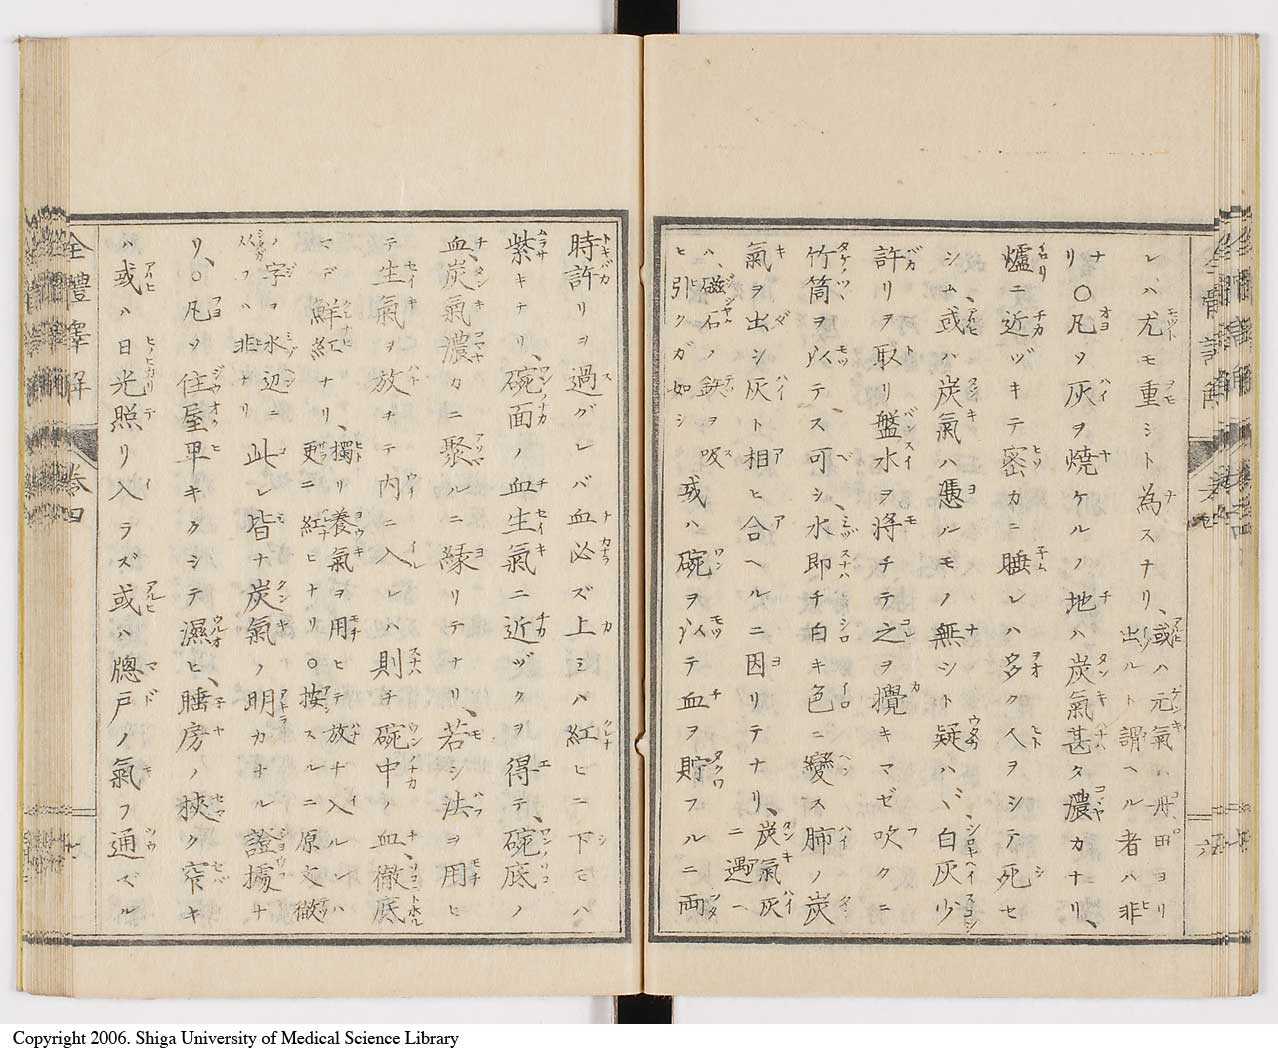 レハ尤モ重シト為スナリ、或ハ元氣ハ丹田ヨリ出ルト謂ヘル者ハ非
ナリ〇凡ソ灰ヲ焼ケルノ地ハ炭氣甚タ濃カナリ、
爐ニ近ヅキテ密カニ睡レハ多ク人ヲシテ死セ
シム、或ハ炭氣ハ憑ルモノ無シト疑ハヾ、白灰少
許リヲ取リ盤水ヲ将チテ之ヲ攪キマゼ吹クニ
竹筒ヲ以テス可シ、水即チ白キ色ニ變ス肺ノ炭
氣ヲ出シ灰ト相ヒ合ヘルニ因リテナリ、炭氣灰ニ遇ヘ
ハ、磁石ノ鉄ヲ吸ヒ引クガ如シ 或ハ碗ヲ以テ血ヲ貯フルニ両
時許リヲ過グレバ血必ズ上ミハ紅ヒニ下モハ、
紫キナリ、碗面ノ血生氣ニ近ヅクヲ得テ、碗底ノ
血、炭氣濃カニ聚ルニ縁リテナリ、若シ法ヲ用ヒ
テ生氣ヲ放チテ内ニ入レハ則チ碗中ノ血、徹底
マデ鮮紅ナリ、獨リ養氣ヲ用ヒテ放チ入ルレハ更ニ紅ヒナリ〇按スルニ原文徹
ノ字ヲ水辺ニ从フハ非ナリ 此レ皆ナ炭氣ノ明カナル證據ナ
リ、〇凡ソ住屋卑キクシテ濕ヒ、睡房ノ挾ク窄キ
ハ或ハ日光照リ入ラズ或ハ牕戸ノ氣フ通ズル
全體譯解 巻四
Copyright 2006. Shiga University of Medical Science Library